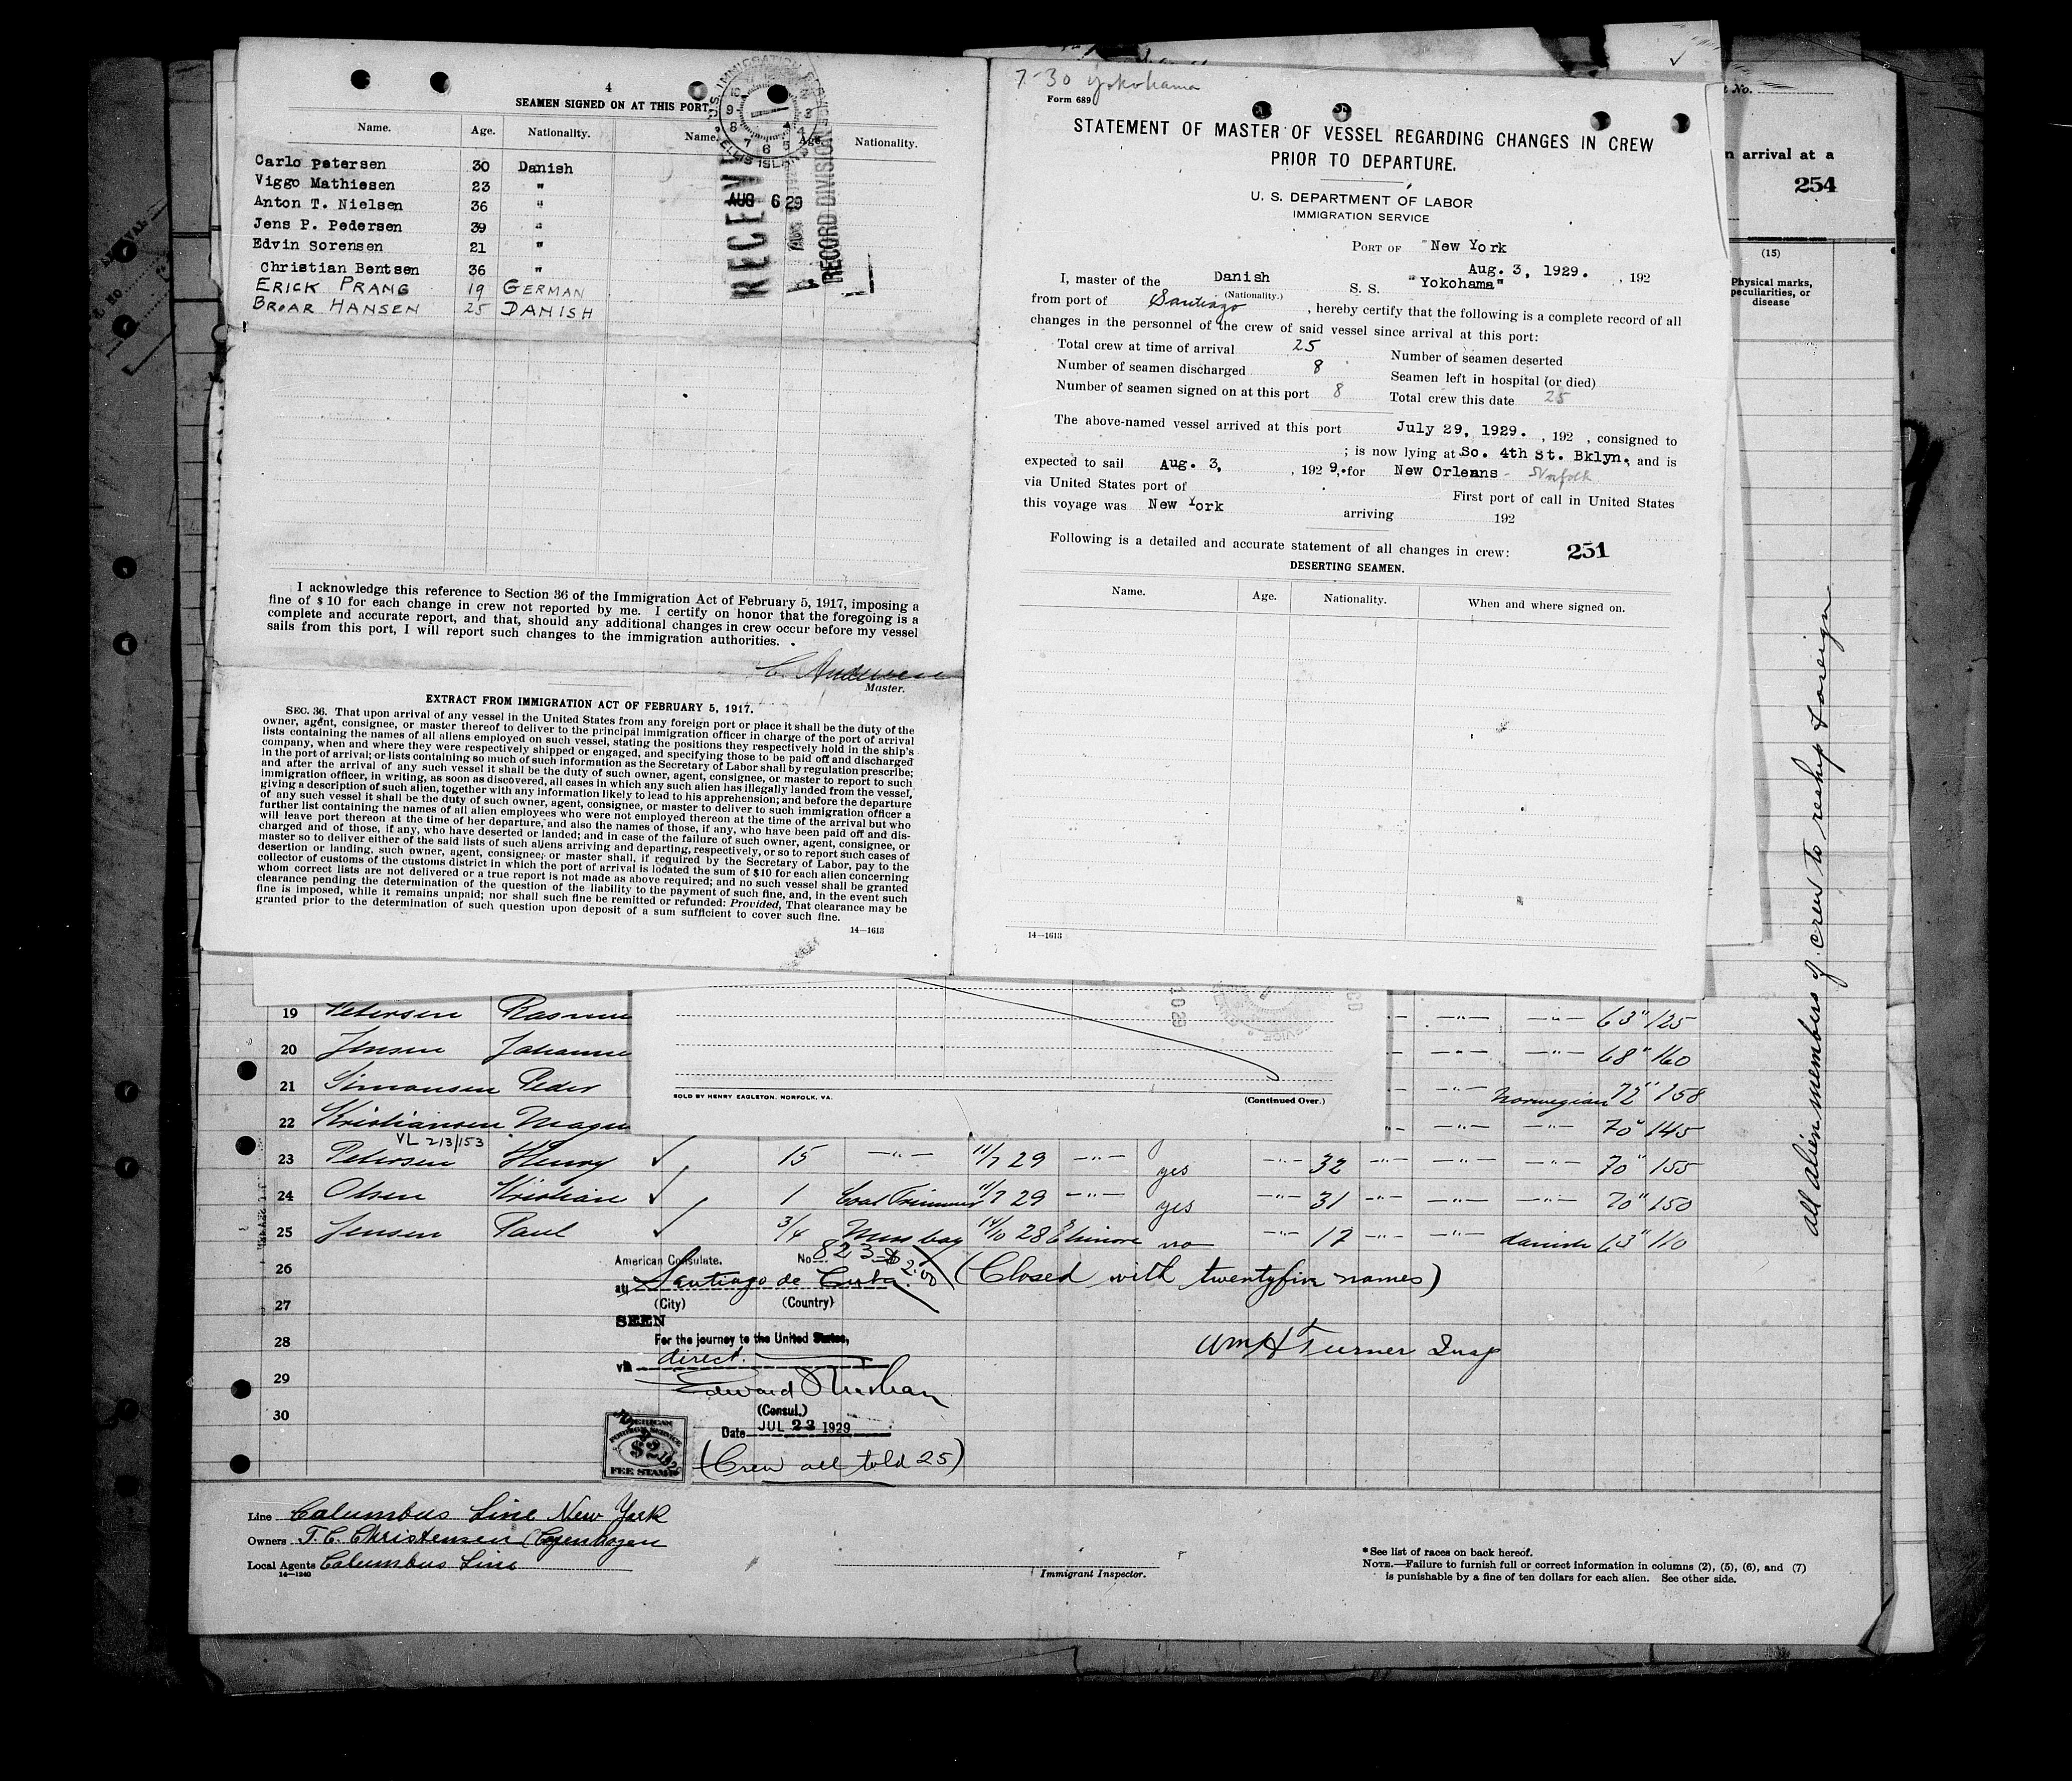 4
SEAMEN SIGNED ON AT THIS PORT.
Name. Age. Nationality. Name. Age. Nationality.
Carlo Petersen 30 Danish
Viggo Mathiesen 23 "
Anton T. Nielsen 36 "
Jens P. Pedersen 39 "
Edvin Sorensen 21 "
Christian Bentsen 36 "
ERICK PRANG 19 GERMAN
BROAR HANSEN 25 DANISH
U.S. IMMIGRATION SERVICE
ELLIS ISLAND
RECEIVED
AUG 6 29
RECORD DIVISION
I acknowledge this reference to Section 36 of the Immigration Act of February 5, 1917, imposing a
fine of $10 for each change in crew not reported by me. I certify on honor that the foregoing is a
complete and accurate report, and that, should any additional changes in crew occur before my vessel
sails from this port, I will report such changes to the immigration authorities.
C. Andersen
Master.
EXTRACT FROM IMMIGRATION ACT OF FEBRUARY 5, 1917.
SEC. 36. That upon arrival of any vessel in the United States from any foreign port or place it shall be the duty of the
owner, agent, consignee, or master thereof to deliver to the principal immigration officer in charge of the port of arrival
lists containing the names of all aliens employed on such vessel, stating the positions they respectively hold in the ship's
company, when and where they were respectively shipped or engaged, and specifying those to be paid off and discharged
in the port of arrival; or lists containing so much of such information as the Secretary of Labor shall by regulation prescribe;
and after the arrival of any such vessel it shall be the duty of such owner, agent, consignee, or master to report to such
immigration officer, in writing, as soon as discovered, all cases in which any such alien has illegally landed from the vessel,
giving a description of such alien, together with any information likely to lead to his apprehension; and before the departure
of any such vessel it shall be the duty of such owner, agent, consignee, or master to deliver to such immigration officer a
further list containing the names of all alien employees who were not employed thereon at the time of the arrival but who
will leave port thereon at the time of her departure, and also the names of those, if any, who have been paid off and dis-
charged and of those, if any, who have deserted or landed; and in case of the failure of such owner, agent, consignee, or
master so to deliver either of the said lists of such aliens arriving and departing, respectively, or so to report such cases of
desertion or landing, such owner, agent, consignee, or master shall, if required by the Secretary of Labor, pay to the
collector of customs of the customs district in which the port of arrival is located the sum of $10 for each alien concerning
whom correct lists are not delivered or a true report is not made as above required; and no such vessel shall be granted
clearance pending the determination of the question of the liability to the payment of such fine, and, in the event such
fine is imposed, while it remains unpaid; nor shall such fine be remitted or refunded: Provided, That clearance may be
granted prior to the determination of such question upon deposit of a sum sufficient to cover such fine.
14—1613
7-30 Yokohama
Form 689
STATEMENT OF MASTER OF VESSEL REGARDING CHANGES IN CREW
PRIOR TO DEPARTURE.
U. S. DEPARTMENT OF LABOR
IMMIGRATION SERVICE
PORT OF New York
Aug. 3, 1929. , 192
I, master of the Danish S. S. "Yokohama"
(Nationality.)
from port of Santiago , hereby certify that the following is a complete record of all
changes in the personnel of the crew of said vessel since arrival at this port:
Total crew at time of arrival 25 Number of seamen deserted
Number of seamen discharged 8 Seamen left in hospital (or died)
Number of seamen signed on at this port 8 Total crew this date 25
The above-named vessel arrived at this port July 29, 1929. , 192 , consigned to
; is now lying at So. 4th St. Bklyn., and is
expected to sail Aug. 3, , 192 9, for New Orleans - Norfolk
via United States port of . First port of call in United States
this voyage was New York arriving 192
Following is a detailed and accurate statement of all changes in crew: 251
DESERTING SEAMEN.
Name. Age. Nationality. When and where signed on.
14—1613
No.
n arrival at a
254
(15)
Physical marks,
peculiarities, or
disease
all alien members of crew to reship foreign
19 Petersen Rasmu —"— —"— 63" 125
20 Jensen Johanne —"— —"— 68" 160
21 Simonsen Peder —"— Norwegian 72" 158
22 Kristiansen Magn —"— —"— 70" 145
VL 213/153
23 Petersen Henry ✓ 15 —"— 11/7 29 —"— yes —"— 32 —"— —"— —"— 70" 155
24 Olsen Kristian ✓ 1 Coal Trimmer 11/7 29 —"— yes —"— 31 —"— —"— —"— 70" 150
25 Jensen Paul ✓ 3/4 Mess boy 14/10 28 Elsinore no —"— 17 —"— —"— danish 63" 110
26
27
28
29
30
SOLD BY HENRY EAGLETON. NORFOLK, VA. (Continued Over.)
American Consulate. No. 823 $2.00
at Santiago de Cuba (Closed with twentyfive names)
(City) (Country)
SEEN
For the journey to the United States,
via direct.
Edward
(Consul.)
Date JUL 23 1929
(Crew all told 25)
AMERICAN
FOREIGN SERVICE
$2
FEE STAMP
Wm H Turner Insp
Line Columbus Line New York
Owners T. C. Christensen Copenhagen
Local Agents Columbus Line
14—1240
Immigrant Inspector.
*See list of races on back hereof.
NOTE.—Failure to furnish full or correct information in columns (2), (5), (6), and (7)
is punishable by a fine of ten dollars for each alien. See other side.